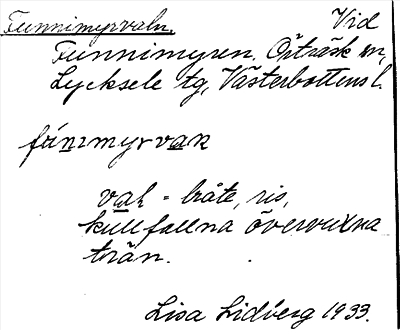 Funnimyrvaln. Vid
Funnimyren. Örträsk sn,
Lycksele tg, Västerbottens l.
vak = bråte, ris,
kullfallna övervuxna
trän.
Lisa Lidberg 1933.